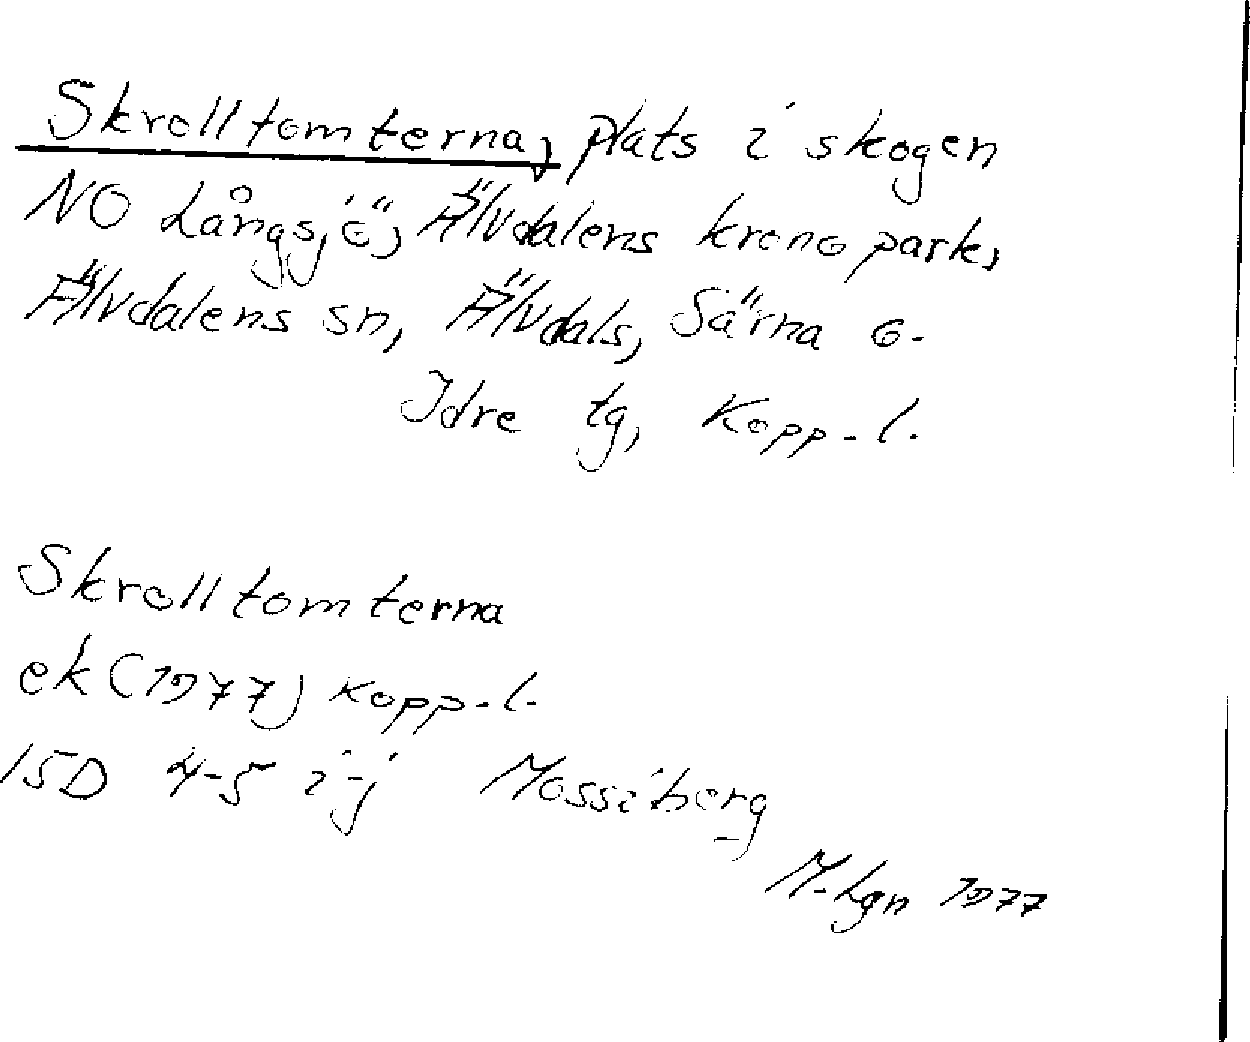 Skrolltomterna, plats i skogen
NO Långsjö, Älvdalens kronopark,
Älvdalens sn, Älvdals, Särna o.
Idre tg, Kopp.l.
Skrolltomterna
ek (1977) Kopp.l.
15D 4-5 i-j Mossiberg
M.Lgn 1977